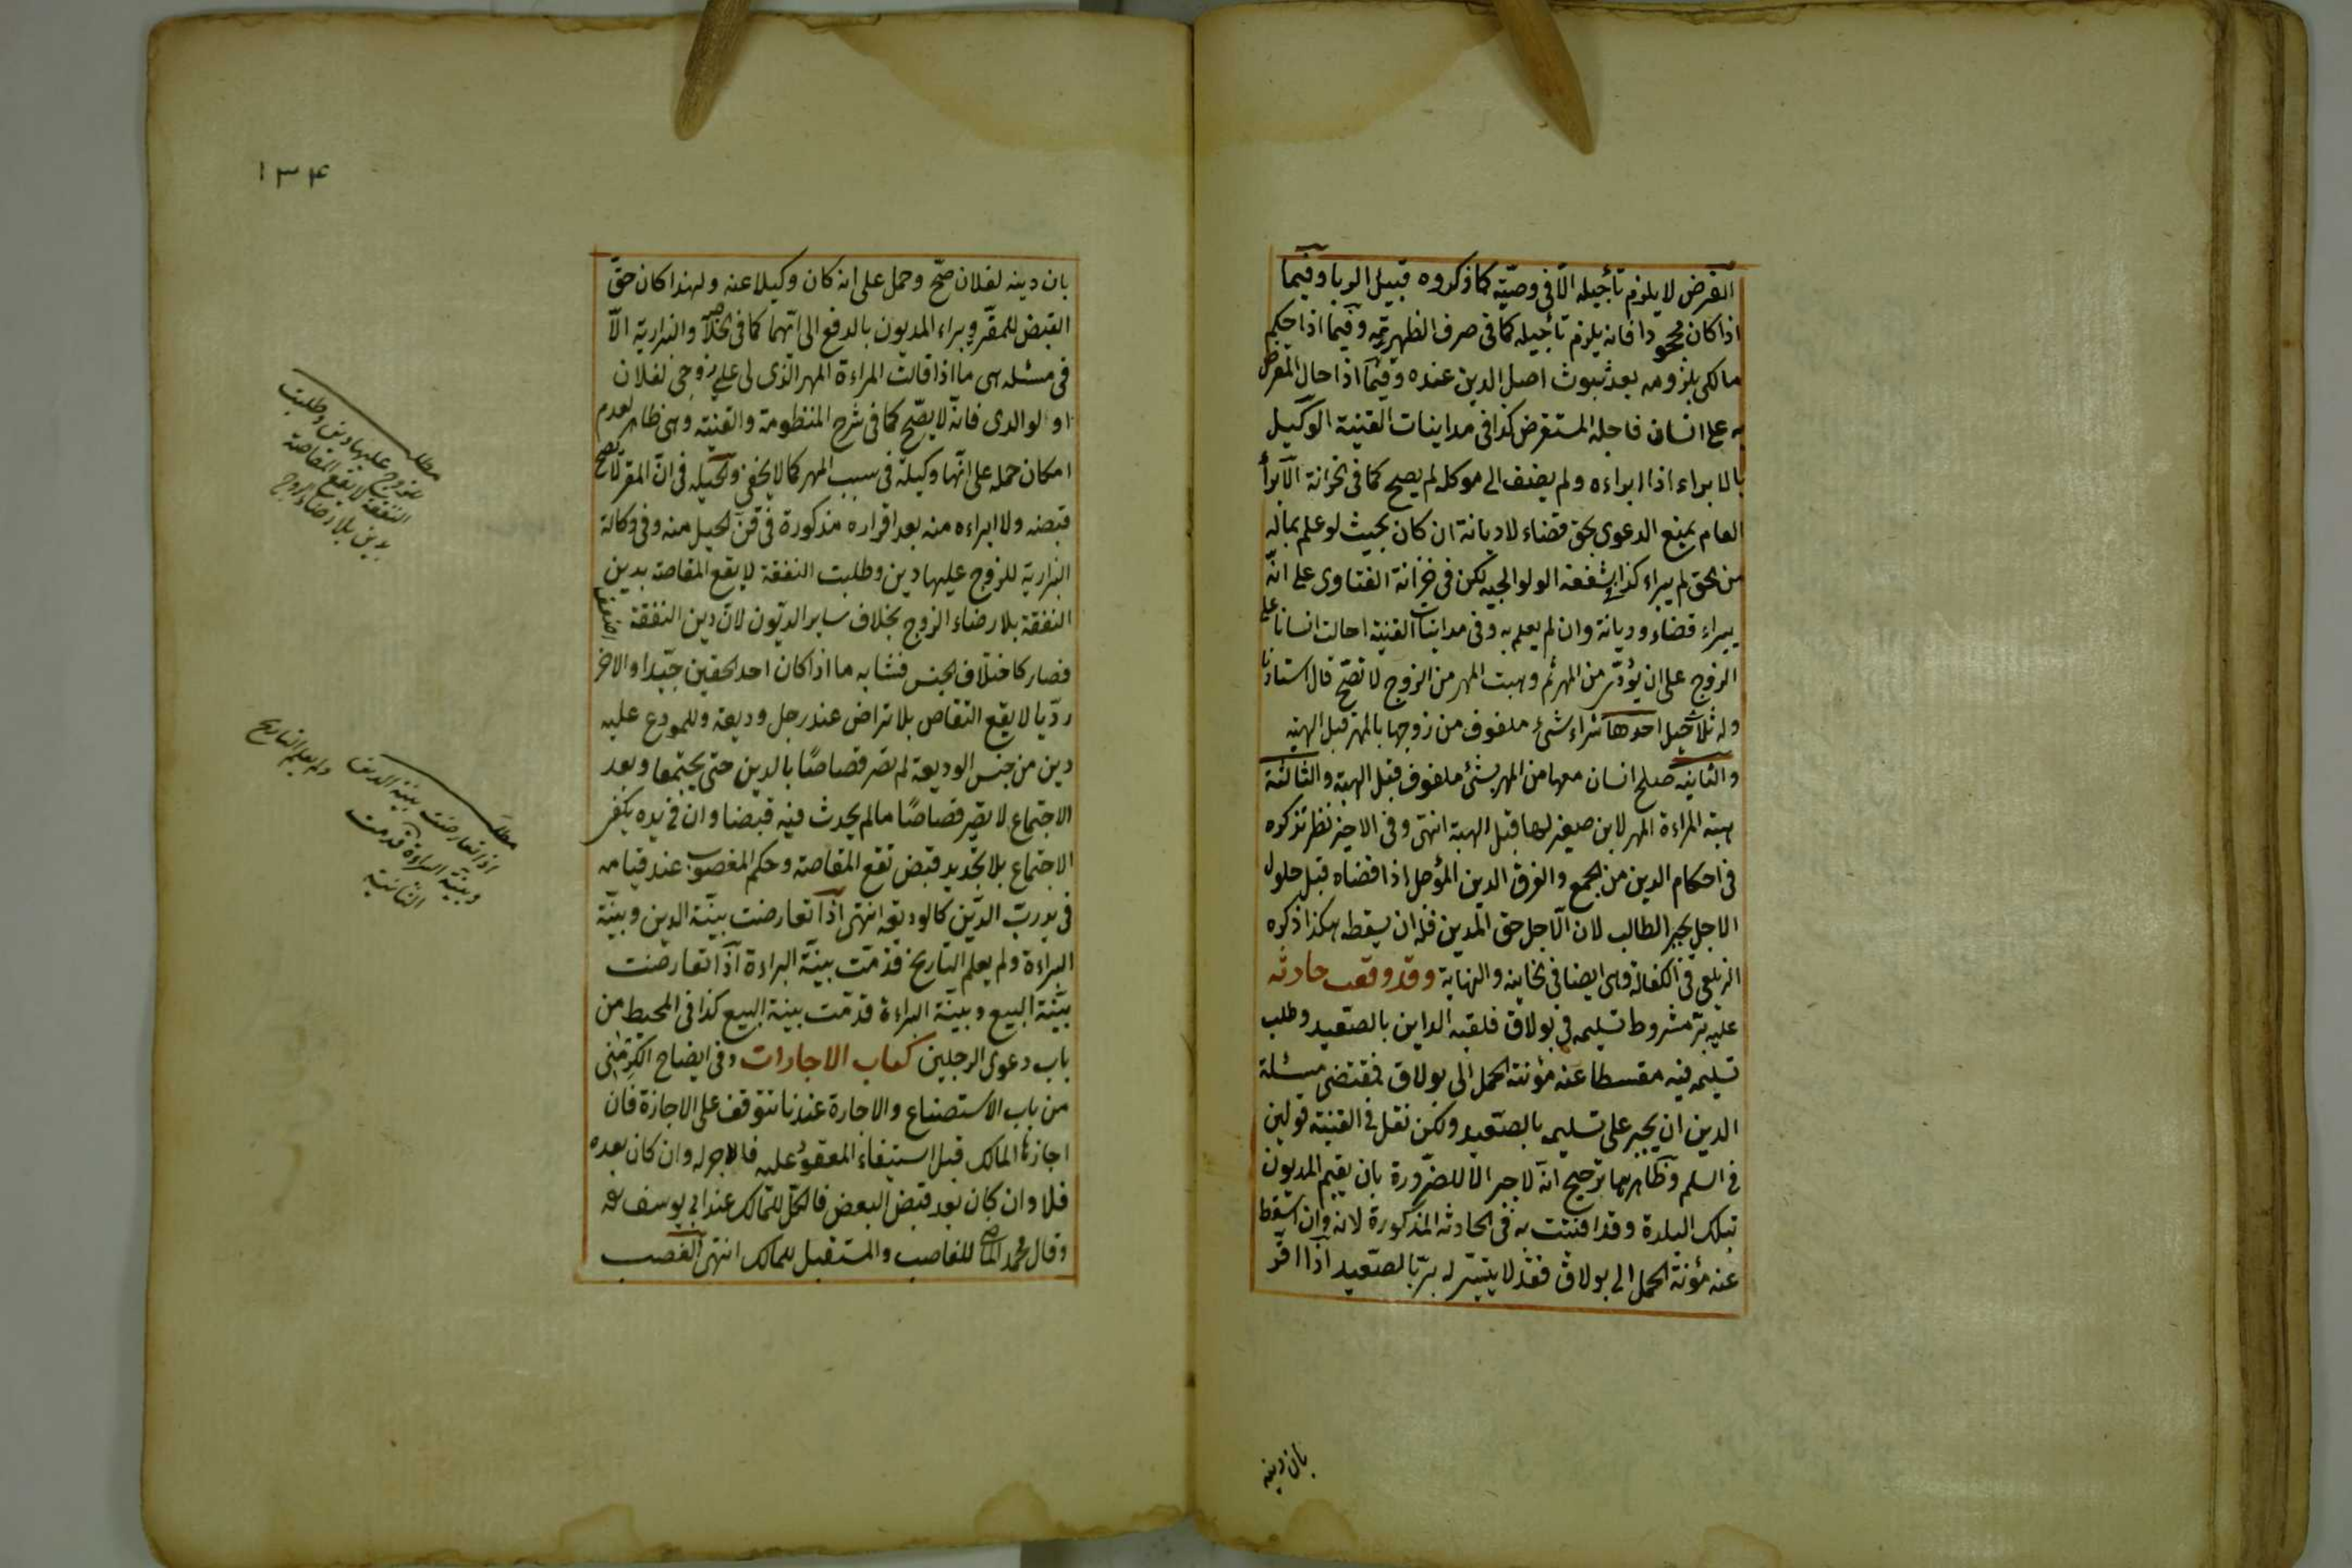 القرض لا يلزم تأجيله الّا فى وصيّة كما ذكروه قبيل الربا وفيما
اذا كان مجحودا فانه يلزم تأجيله كما فى صرف الظهيرية وفيما اذا حكم
مالكى بلزومه بعد ثبوت اصل الدين عنده وفيما اذا حال المقرض
به على انسان فاجله المستقرض كذا فى مداينات القنية الوكيل
بالابراء اذا ابراءه ولم يضف الى موكله لم يصح كما فى الخزانة الابرأ
العام يمنع الدعوى بحق قضاء لا ديانة ان كان بحيث لو علم بماله
من الحق لم يبراء كذا بشفعة الولوالجيه لكن فى خزانة الفتاوى على انّه
يبراء قضاء وديانة وان لم يعلم به وفى مداينات القنية احالت انسانا على
الزوج على ان يؤدّى من المهر ثم وهبت المهر من الزوج لا تصّح قال استاذنا
وله ثلاث حيل احدها شراء شئ ملفوف من زوجها بالمهر قبل الهبة
والثانيه صلح انسان معها من المهر بشئ ملفوف قبل الهبة والثالثة
هبة المراءة المهر لابن صغير لها قبل الهبة انتهى وفى الاخير نظر نذكره
فى احكام الدين من الجمع والفرق الدين المؤجل اذا قضاه قبل حلول
الاجل يجبر الطالب لان الّاجل حق المدين فله ان يسقطه هكذا ذكره
الزيلعى فى الكفالة وهى ايضا فى الخانيه والنهاية وقد وقعت حادثه
عليه بّر مشروط تسليمه فى بولاق فلقيه الداين بالصّعيد وطلب
تسليمه فيه مقسطا عنه مؤنة الحمل الى بولاق فمقتضى مسئلة
الدين ان يجبر على تسليمه بالصّعيد ولكن نقل فى القنية قولين
فى السلم وظاهرهما ترجيح انّه لا جبر الّا للضّرورة بان يقيم المديون
بتلك البلدة وقد افتيت به فى الحادثه المذكورة لانه وان اسقط
عنه مؤنة الحمل الى بولاق فقد لا يتيسّر له برّ بالصّعيد اذا اقّر
بان دينه
١٣٤
بان دينه لفلان صّح وحمل على انه كان وكيلا عنه ولهذا كان حقّ
القبض للمقرّ ويبراء المديون بالدفع الى ايّهما كما فى الخلاصة والبزازية الّا
فى مسئله هى ما اذا قالت المراءة المهر الذّى لى على زوجى لفلان
او لوالدى فانّه لا يصّح كما فى شرح المنظومة والقنية وهى ظاهر لعدم
امكان حمله على انّها وكيلة فى سبب المهر كما لا يخفى والحيلة فى انّ المقرّ لا يصح
قبضه ولا ابراءه منه بعد اقراره مذكورة فى فنّ الحيل منه وفى وكالة
البزازية للزوج عليها دين وطلبت النفقة لا يقع المقاصة بدين
النفقة بلا رضاء الزوج بخلاف ساير الديّون لانّ دين النفقة اضعف
فصار كاختلاف الجنس فشابه ما اذا كان احد الحقين جيّدا والاخر
ردّيا لا يقع التقاص بلا تراض عند رجل وديعة وللمودع عليه
دين من جنس الوديعة لم تصر قصاصًا بالدين حتى يجتمعا وبعد
الاجتماع لا تصير قصاصًا مالم يحدث فيه قبضا وان فى يده يكفى
الاجتماع بلا تجديد قبض تقع المقاصة وحكم المغصوب عند قيامه
فى يد ربّ الدّين كالوديعة انتهى اذا تعارضت بيّنة الدين وبيّنة
البراءة ولم يعلم التأريخ قدّمت بيّنة البراءة اذا تعارضت
بيّنة البيع وبيّنة البراءة قدّمت بينة البيع كذا فى المحيط من
باب دعوى الرجلين كتاب الاجارات وفى ايضاح الكرمنى
من باب الاستصناع والاجارة عندنا تتوقف على الاجازة فان
اجازها المالك قبل استيفاء المعقود عليه فالاجر له وان كان بعده
فلا وان كان بعد قبض البعض فالكّل للمالك عند ابى يوسف رحمه
وقال محمد الماضى للغاصب والمستقبل للمالك انتهى الغصب
مطلب
للزوج عليها دين وطلبت
النفقة لا تقع المقاصة
بدين بلا رضاء الزوج
مطلب
اذا تعارضت بينة الدين ولم يعلم التاريخ
وبينة البراءة قدمت
الثانية